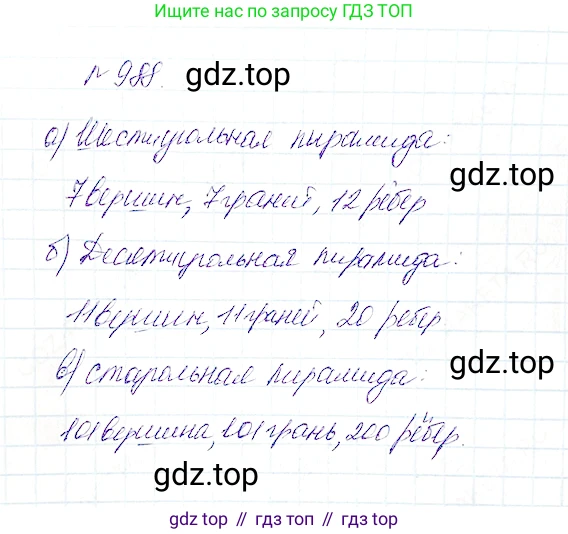 Ищите нас по запросу ГДЗ ТОП
№ 988. gdz.top
а) Шестиугольная пирамида:
gdz.top
7 вершин, 7 граней, 12 рёбер
б) Десятиугольная пирамида:
11 вершин, 11 граней, 20 ребер
gdz.top
в) стоугольная пирамида:
101 вершина, 101 грань, 200 рёбер.
gdz.top
gdz top // гдз топ // гдз top